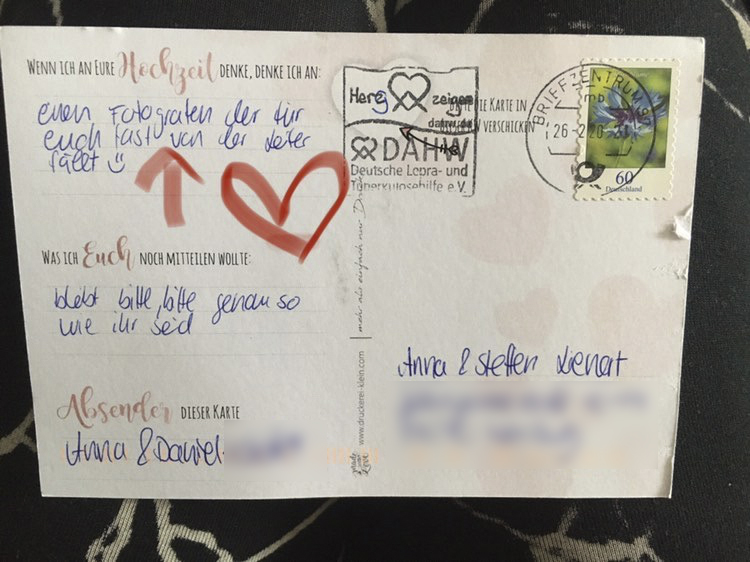 WENN ICH AN EURE Hochzeit DENKE, DENKE ICH AN:
einen Fotografen der für
euch fast von der Leiter
fällt
WAS ICH Euch NOCH MITTEILEN WOLLTE:
bleibt bitte, bitte genau so
wie ihr seid
Absender DIESER KARTE
Anna & Daniel
www.druckerei-klein.com | mehr als einfach nur
made with Love
Herz zeigen
DAHW
Deutsche Lepra- und
Tuberkulosehilfe e.V.
DIE KARTE IN
VERSCHICKEN
BRIEFZENTRUM
26-2.20
60
Deutschland
Anna & Steffen Lienert